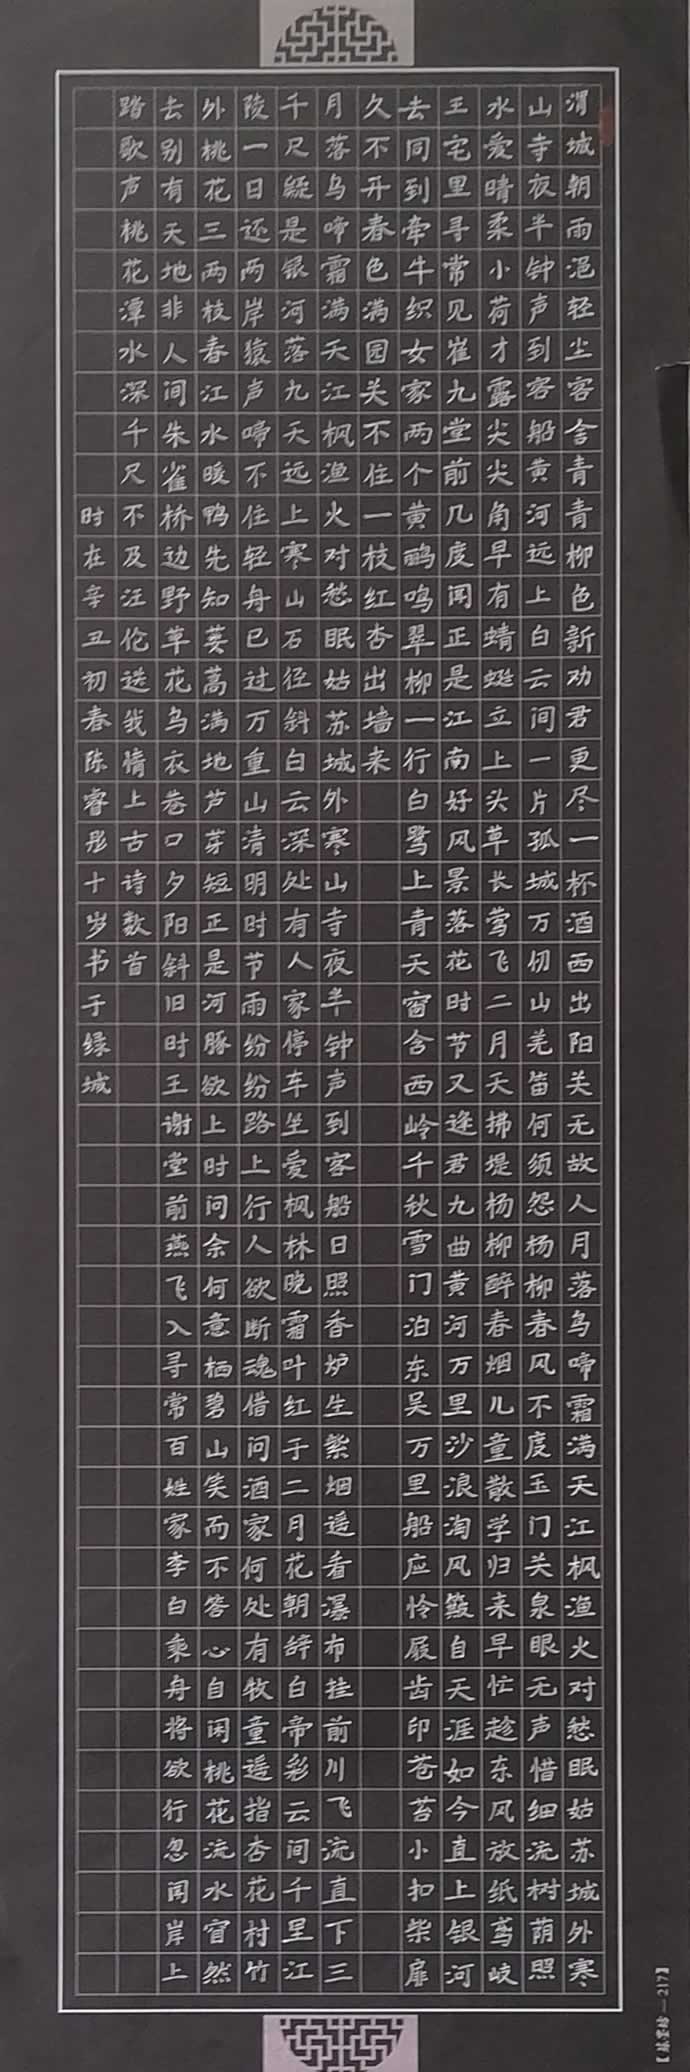 渭城朝雨浥轻尘客舍青青柳色新劝君更尽一杯酒西出阳关无故人月落乌啼霜满天江枫渔火对愁眠姑苏城外寒
山寺夜半钟声到客船黄河远上白云间一片孤城万仞山羌笛何须怨杨柳春风不度玉门关泉眼无声惜细流树荫照
水爱晴柔小荷才露尖尖角早有蜻蜓立上头草长莺飞二月天拂堤杨柳醉春烟儿童散学归来早忙趁东风放纸鸢岐
王宅里寻常见崔九堂前几度闻正是江南好风景落花时节又逢君九曲黄河万里沙浪淘风簸自天涯如今直上银河
去同到牵牛织女家两个黄鹂鸣翠柳一行白鹭上青天窗含西岭千秋雪门泊东吴万里船应怜屐齿印苍苔小扣柴扉
久不开春色满园关不住一枝红杏出墙来
月落乌啼霜满天江枫渔火对愁眠姑苏城外寒山寺夜半钟声到客船日照香炉生紫烟遥看瀑布挂前川飞流直下三
千尺疑是银河落九天远上寒山石径斜白云深处有人家停车坐爱枫林晚霜叶红于二月花朝辞白帝彩云间千里江
陵一日还两岸猿声啼不住轻舟已过万重山清明时节雨纷纷路上行人欲断魂借问酒家何处有牧童遥指杏花村竹
外桃花三两枝春江水暖鸭先知蒌蒿满地芦芽短正是河豚欲上时问余何意栖碧山笑而不答心自闲桃花流水窅然
去别有天地非人间朱雀桥边野草花乌衣巷口夕阳斜旧时王谢堂前燕飞入寻常百姓家李白乘舟将欲行忽闻岸上
踏歌声桃花潭水深千尺不及汪伦送我情上古诗数首
时在辛丑初春陈睿彤十岁书于绿城
217